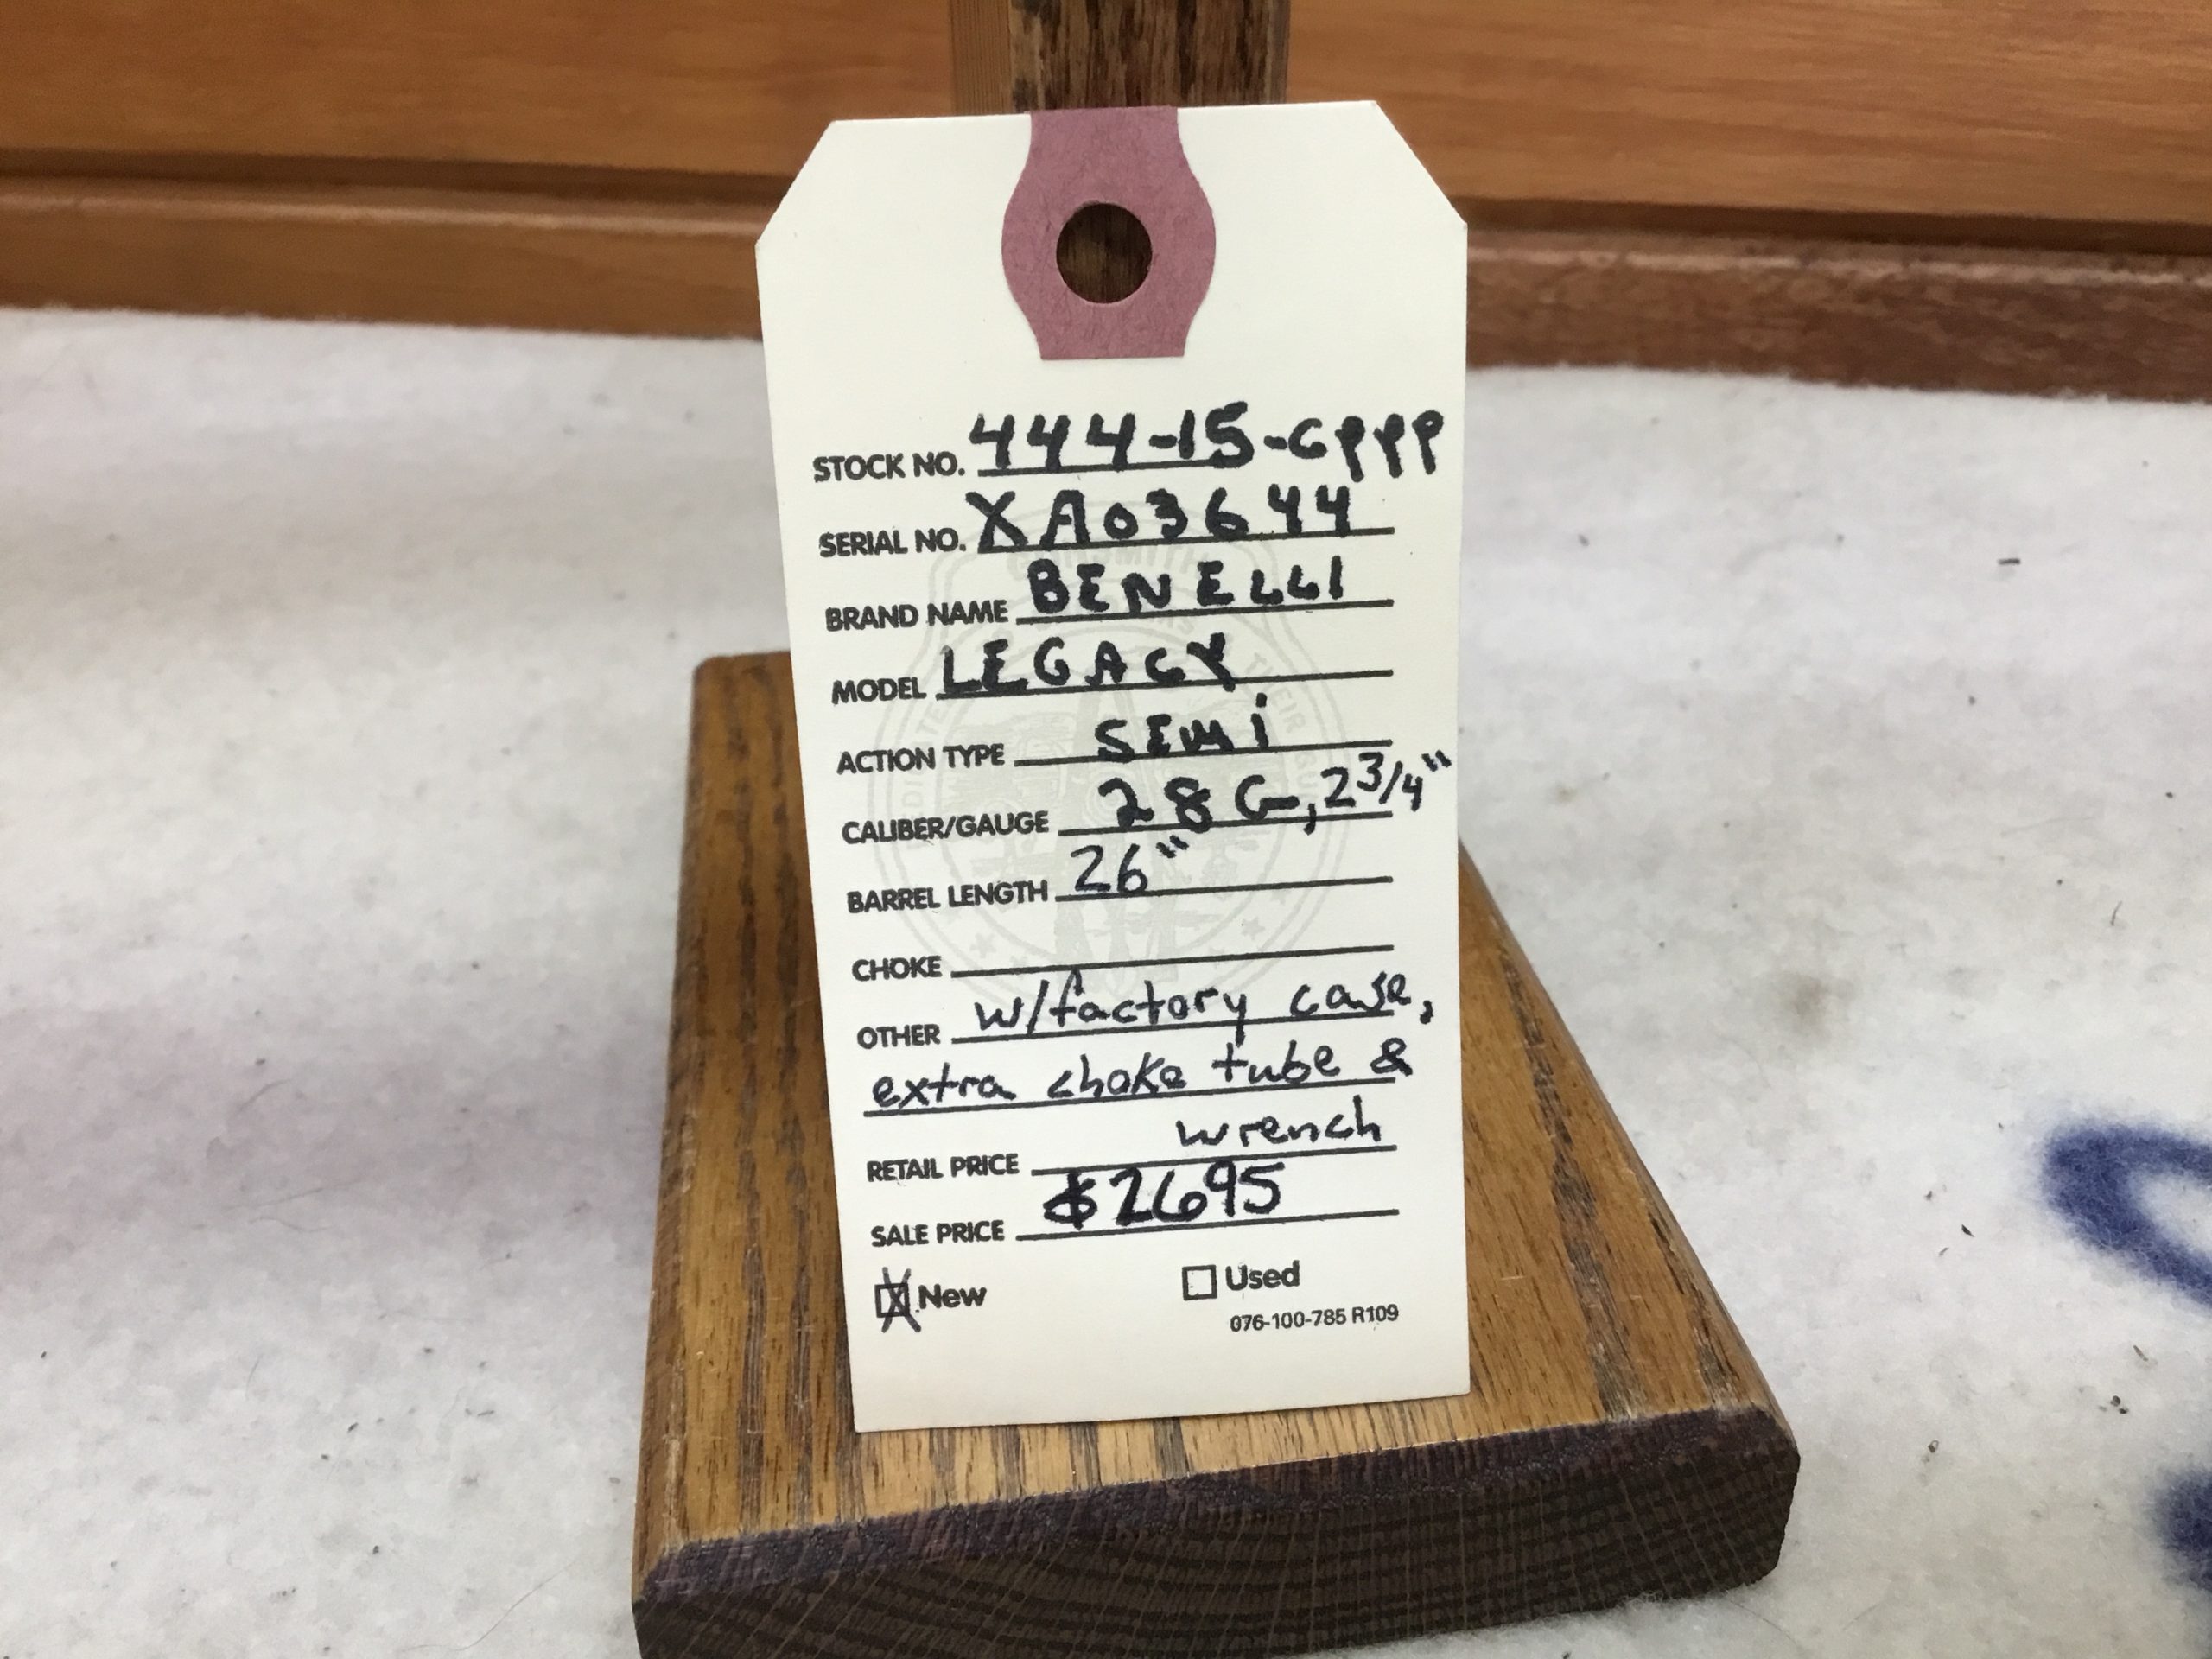 STOCK NO. 444-15-CPPP
SERIAL NO. XA03644
BRAND NAME BENELLI
MODEL LEGACY
ACTION TYPE SEMI
CALIBER/GAUGE 28 G, 2 3/4"
BARREL LENGTH 26"
CHOKE
OTHER w/factory case,
extra choke tube &
wrench
RETAIL PRICE
SALE PRICE $2695
X New Used
076-100-785 R109